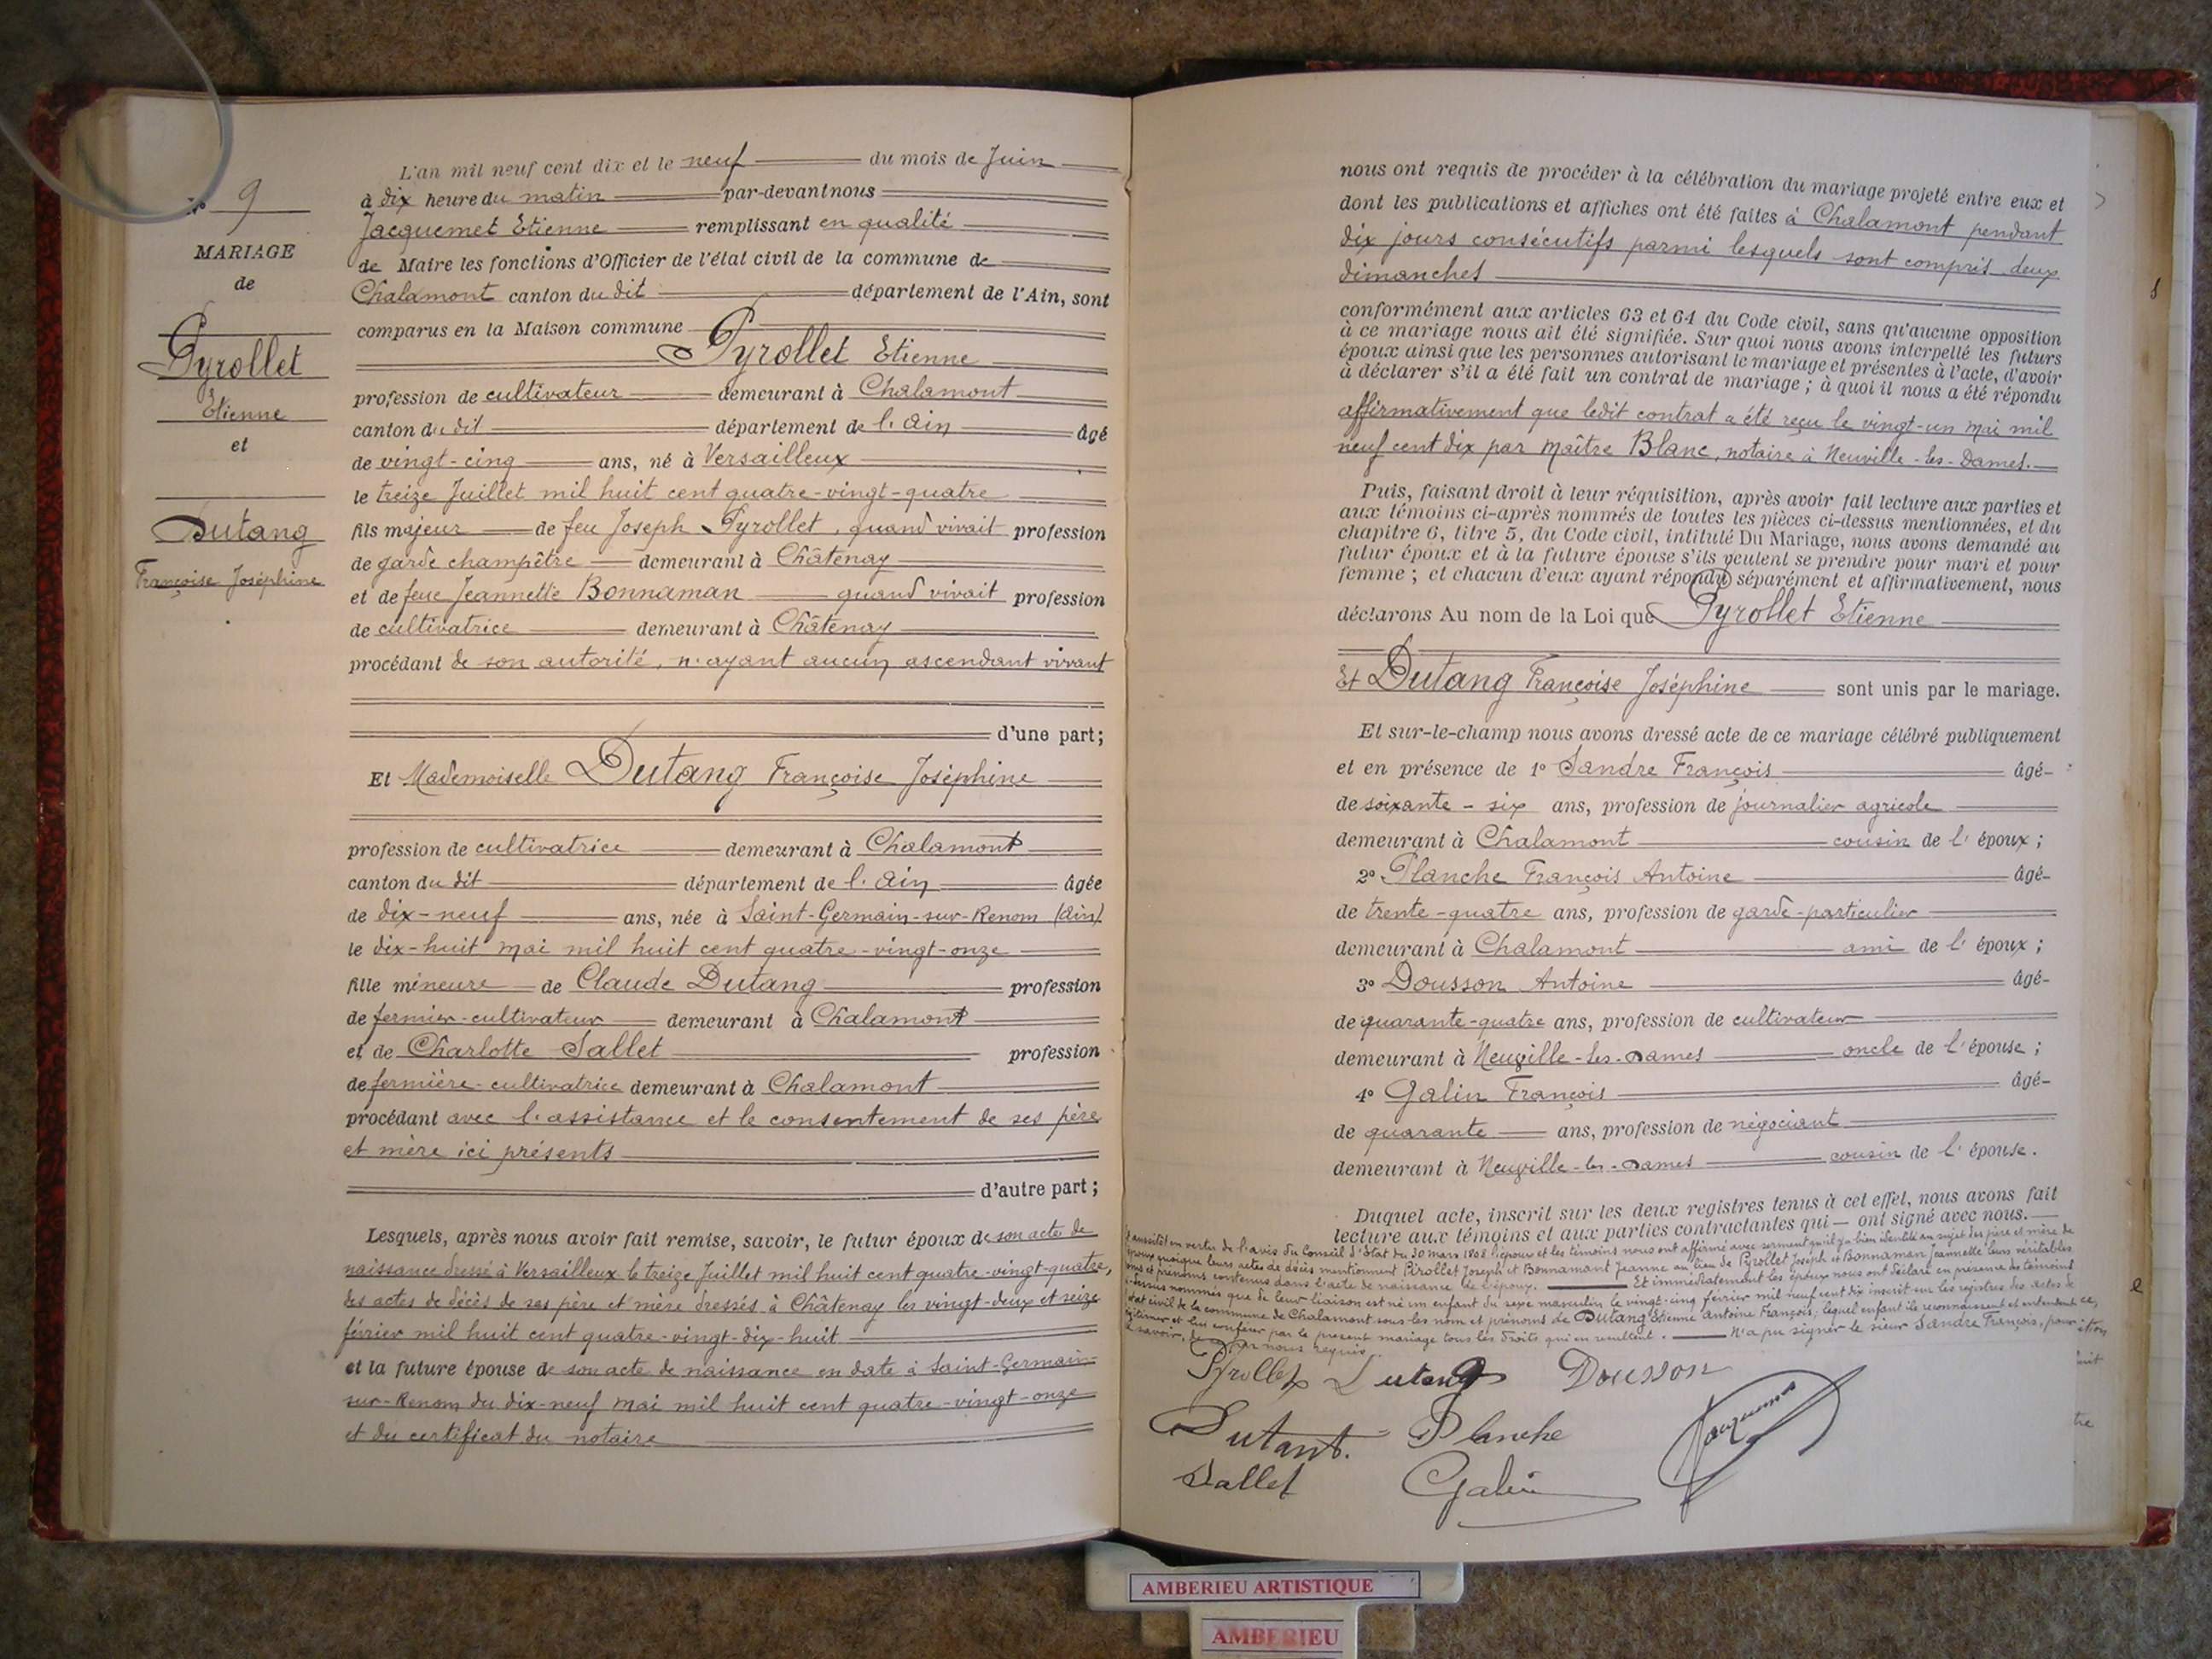 N° 9
MARIAGE
de
Pyrollet
Etienne
et
Dutang
Françoise Joséphine
L'an mil neuf cent dix et le neuf du mois de Juin
à dix heure du matin par-devant nous
Jacquemet Etienne remplissant en qualité
de Maire les fonctions d'Officier de l'état civil de la commune de
Chalamont canton du dit département de l'Ain, sont
comparus en la Maison commune
Pyrollet Etienne
profession de cultivateur demeurant à Chalamont
canton du dit département de l'Ain âgé
de vingt-cinq ans, né à Versailleux
le treize Juillet mil huit cent quatre-vingt-quatre
fils majeur de feu Joseph Pyrollet, quand vivait profession
de garde champêtre demeurant à Châtenay
et de feue Jeannette Bonnaman quand vivait profession
de cultivatrice demeurant à Châtenay
procédant de son autorité, n'ayant aucun ascendant vivant
d'une part;
Et Mademoiselle Dutang Françoise Joséphine
profession de cultivatrice demeurant à Chalamont
canton du dit département de l'Ain âgée
de dix-neuf ans, née à Saint-Germain-sur-Renom (Ain)
le dix-huit mai mil huit cent quatre-vingt-onze
fille mineure de Claude Dutang profession
de fermier-cultivateur demeurant à Chalamont
et de Charlotte Sallet profession
de fermière-cultivatrice demeurant à Chalamont
procédant avec l'assistance et le consentement de ses père
et mère ici présents
d'autre part;
Lesquels, après nous avoir fait remise, savoir, le futur époux de son acte de
naissance dressé à Versailleux le treize Juillet mil huit cent quatre-vingt-quatre,
des actes de décès de ses père et mère dressés à Châtenay les vingt-deux et seize
février mil huit cent quatre-vingt-dix-huit
et la future épouse de son acte de naissance en date à Saint-Germain-
sur-Renom du dix-neuf mai mil huit cent quatre-vingt-onze
et du certificat du notaire
nous ont requis de procéder à la célébration du mariage projeté entre eux et
dont les publications et affiches ont été faites à Chalamont pendant
dix jours consécutifs parmi lesquels sont compris deux
dimanches
conformément aux articles 63 et 64 du Code civil, sans qu'aucune opposition
à ce mariage nous ait été signifiée. Sur quoi nous avons interpellé les futurs
époux ainsi que les personnes autorisant le mariage et présentes à l'acte, d'avoir
à déclarer s'il a été fait un contrat de mariage; à quoi il nous a été répondu
affirmativement que ledit contrat a été reçu le vingt-un mai mil
neuf cent dix par Maître Blanc, notaire à Neuville-les-Dames.
Puis, faisant droit à leur réquisition, après avoir fait lecture aux parties et
aux témoins ci-après nommés de toutes les pièces ci-dessus mentionnées, et du
chapitre 6, titre 5, du Code civil, intitulé Du Mariage, nous avons demandé au
futur époux et à la future épouse s'ils veulent se prendre pour mari et pour
femme; et chacun d'eux ayant répondu séparément et affirmativement, nous
déclarons Au nom de la Loi que Pyrollet Etienne
Et Dutang Françoise Joséphine sont unis par le mariage.
Et sur-le-champ nous avons dressé acte de ce mariage célébré publiquement
et en présence de 1° Sandre François âgé
de soixante-six ans, profession de journalier agricole
demeurant à Chalamont cousin de l'époux;
2° Planche François Antoine âgé
de trente-quatre ans, profession de garde-particulier
demeurant à Chalamont ami de l'époux;
3° Dousson Antoine âgé
de quarante-quatre ans, profession de cultivateur
demeurant à Neuville-les-Dames oncle de l'épouse;
4° Galin François âgé
de quarante ans, profession de négociant
demeurant à Neuville-les-Dames cousin de l'épouse.
Duquel acte, inscrit sur les deux registres tenus à cet effet, nous avons fait
lecture aux témoins et aux parties contractantes qui ont signé avec nous.
aussitôt en vertu de l'avis du Conseil d'Etat du 30 mars 1808 l'époux et les témoins nous ont affirmé avec serment qu'il y a bien identité au sujet des père et mère de
époux quoique leurs actes de décès mentionnent Pirollet Joseph et Bonnamant Jeanne au lieu de Pyrollet Joseph et Bonnaman Jeannette leurs véritables
noms et prénoms contenus dans l'acte de naissance de l'époux. Et immédiatement les époux nous ont déclaré en présence des témoins
ci-dessus nommés que de leur liaison est né un enfant du sexe masculin le vingt-cinq février mil neuf cent dix inscrit sur les registres des actes de
état civil de la commune de Chalamont sous les nom et prénoms de Dutang Etienne Antoine François, lequel enfant ils reconnaissent et entendent
légitimer et lui conférer par le présent mariage tous les droits qui en résultent. N'a pu signer le sieur Sandre François, pour
le savoir, de par nous requis.
Pyrollet Dutang Dousson
Dutant. Planche Jacquemet
Sallet Galin
AMBERIEU ARTISTIQUE
AMBERIEU